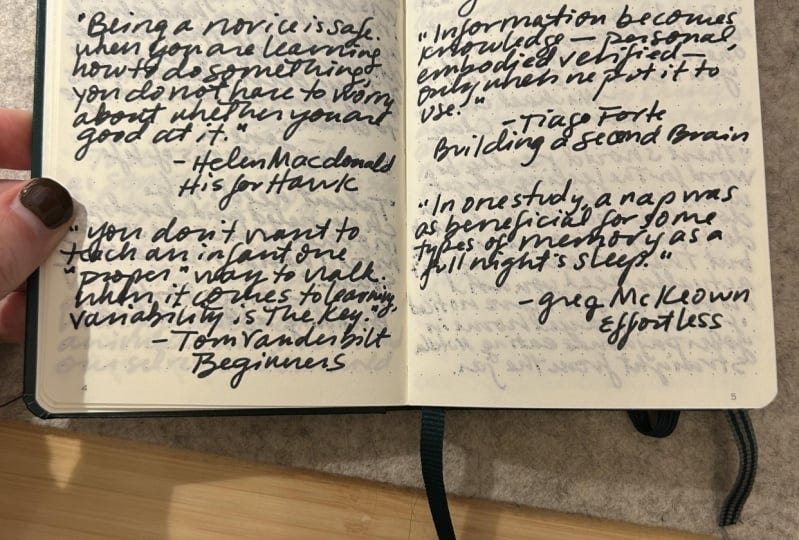 "Being a novice is safe.
when you are learning
how to do something,
you do not have to worry
about whether you are
good at it."
- Helen Macdonald
H is for Hawk
"you don't want to
teach an infant one
"proper" way to walk.
when it comes to learning,
variability is the key."
- Tom Vanderbilt
Beginners
4
"Information becomes
knowledge — personal,
embodied, verified —
only when we put it to
use."
- Tiago Forte
Building a Second Brain
"In one study, a nap was
as beneficial for some
types of memory as a
full night's sleep."
- Greg McKeown
Effortless
5